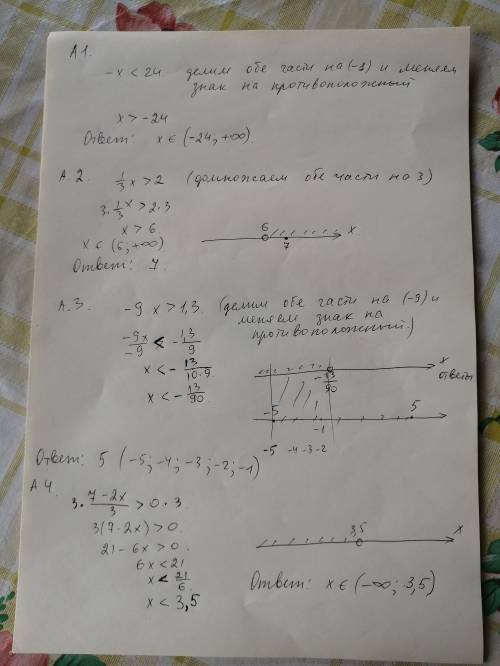 А1.
-x < 24 делим обе части на (-1) и меняем
знак на противоположный
x > -24
Ответ: x ∈ (-24, +∞).
А.2. 1/3 x > 2 (домножаем обе части на 3)
3·1/3 x > 2·3
x > 6.
x ∈ (6; +∞)
6 7 x
Ответ: 7
А.3. -9 x > 1,3. (делим обе части на (-9) и
меняем знак на
противоположный.)
-9x/-9 < -1,3/9
x < -13/10·9
x < -13/90
-13/90 x
ответы
-5 -1 5
-5 -4 -3 -2
Ответ: 5 (-5; -4; -3; -2; -1)
А4.
3·7-2x/3 > 0·3
3(7-2x) > 0
21-6x > 0
6x < 21
x < 21/6
x < 3,5
3,5 x
Ответ: x ∈ (-∞; 3,5)